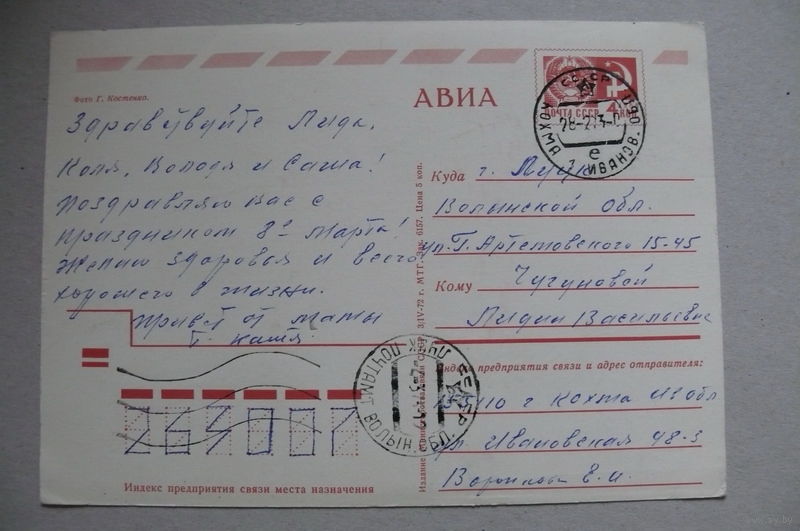 Фото Г. Костенко.
АВИА
ПОЧТА СССР 4 КОП
СССР
КОХМА ИВАНОВ. ОБЛ
е
Здравствуйте Лида,
Коля, Володя и Саша!
Поздравляю Вас с
праздником 8го марта!
Желаю здоровья и всего
хорошего в жизни.
Привет от мамы
т. Катя
Куда г. Луцк
Волынской обл.
ул. Г. Артемовского 15-45
Кому Чугуновой
Лидии Васильевне
Индекс предприятия связи и адрес отправителя:
г Кохма Из обл
ул Ивановская 48-3
Е. И.
ЛУЦК ПОЧТАМТ ВОЛЫН. ОБЛ.
СССР
3/IV-72 г. МТГ. Зак. 6157. Цена 5 коп.
Индекс предприятия связи места назначения